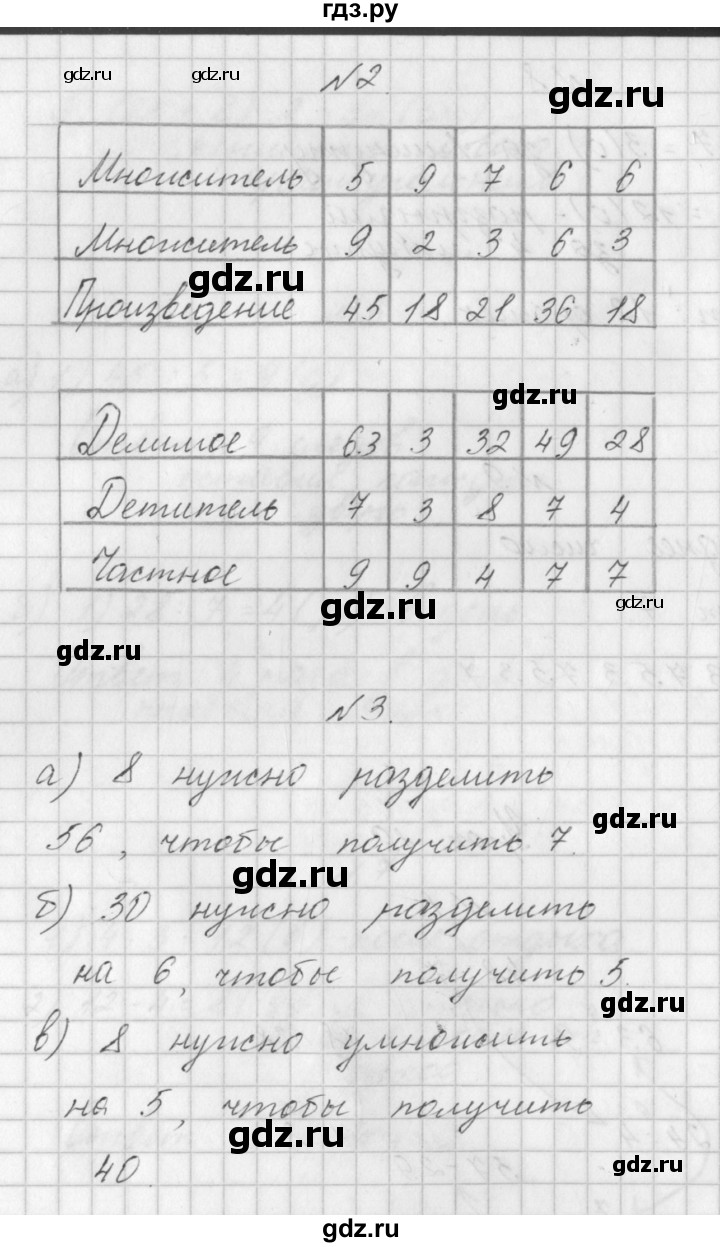 гдз.ру
gdz.ru gdz.ru №2. gdz.ru
Множитель 5 9 7 6 6
Множитель 9 2 3 6 3
gdz.ru
Произведение 45 18 21 36 18
gdz.ru
Делимое 63 3 32 49 28
Детитель 7 3 8 7 4
Частное 9 9 4 7 7
gdz.ru gdz.ru
gdz.ru
№3.
а) 8 нужно разделить
gdz.ru
56, чтобы получить 7.
gdz.ru
б) 30 нужно разделить
на 6, чтобы получить 5.
gdz.ru
в) 8 нужно умножить
на 5, чтобы получить
gdz.ru
40.
gdz.ru
gdz.ru